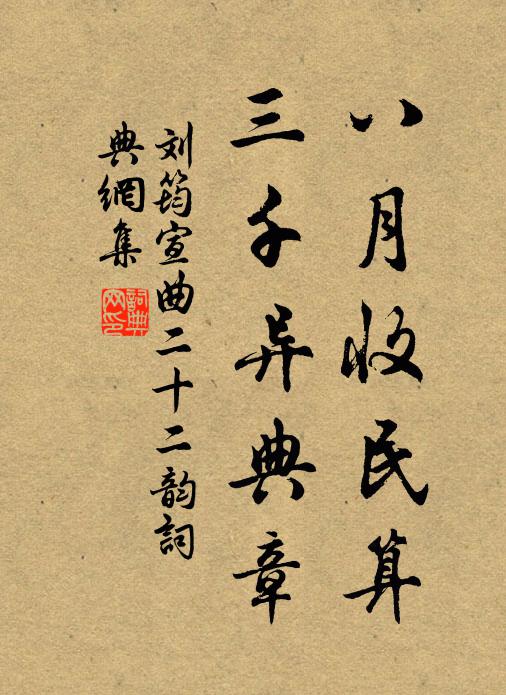 八月收民算
三千异典章
刘筠宣曲二十二韵詞
典網集
詞典網印